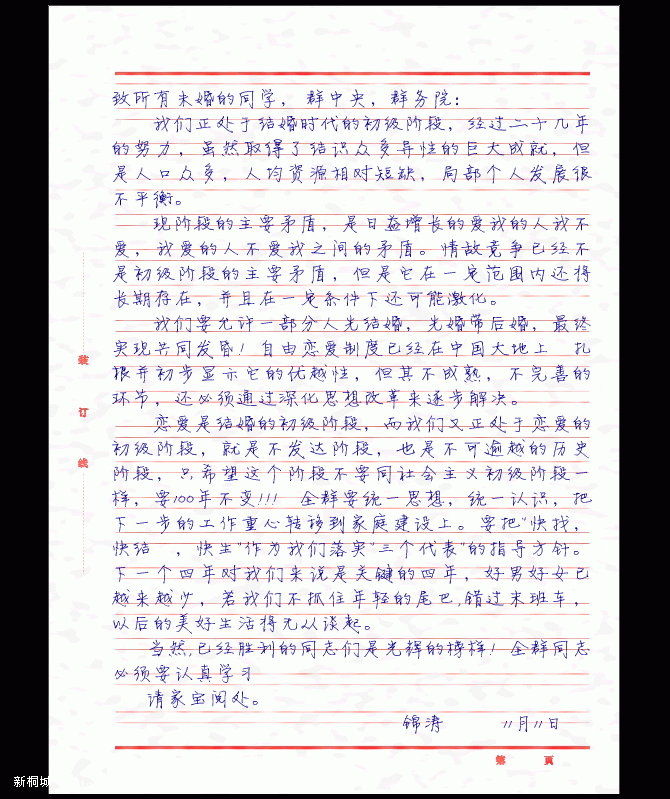 致所有未婚的同学，群中央，群务院：
我们正处于结婚时代的初级阶段，经过二十几年
的努力，虽然取得了结识众多异性的巨大成就，但
是人口众多，人均资源相对短缺，局部个人发展很
不平衡。
现阶段的主要矛盾，是日益增长的爱我的人我不
爱，我爱的人不爱我之间的矛盾。情敌竞争已经不
是初级阶段的主要矛盾，但是它在一定范围内还将
长期存在，并且在一定条件下还可能激化。
我们要允许一部分人先结婚，先婚带后婚，最终
实现共同发昏！自由恋爱制度已经在中国大地上 扎
根并初步显示它的优越性，但其不成熟，不完善的
环节，还必须通过深化思想改革来逐步解决。
恋爱是结婚的初级阶段，而我们又正处于恋爱的
初级阶段，就是不发达阶段，也是不可逾越的历史
阶段，只希望这个阶段不要同社会主义初级阶段一
样，要100年不变！！！ 全群要统一思想，统一认识，把
下一步的工作重心转移到家庭建设上。要把“快找，
快结 ，快生”作为我们落实“三个代表”的指导方针。
下一个四年对我们来说是关键的四年，好男好女已
越来越少，若我们不抓住年轻的尾巴,错过末班车，
以后的美好生活将无从谈起。
当然,已经胜利的同志们是光辉的榜样！全群同志
必须要认真学习
请家宝阅处。
锦涛 11月11日
装
订
线
第 頁
新桐城